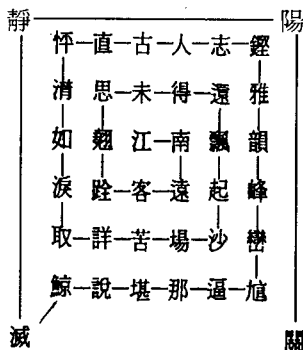 靜 陽
怦直古人志鏗
潸思未得還雅
如翹江南飄韻
淚跧客遠起峰
取詳苦場沙巒
鯨說堪那逼
滅 關